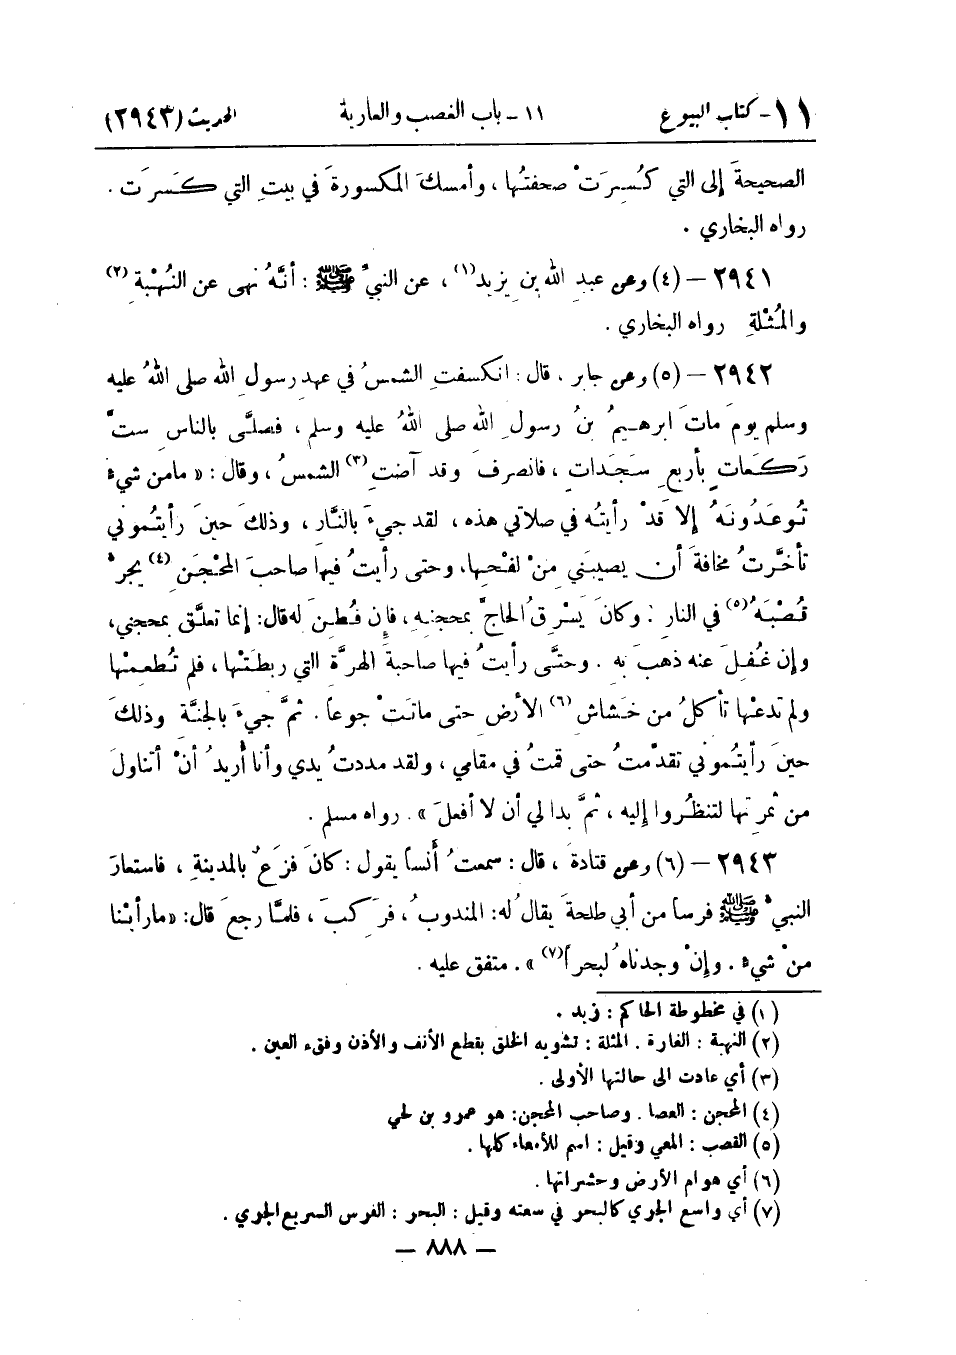 ١١ - كتاب البيوع ١١ - باب الغصب والعارية الحديث (٢٩٤٣)
الصحيحةَ إلى التي كُسِرَتْ صحفتُها ، وأمسكَ المكسورةَ في بيتِ التي كَسَرَت .
رواه البخاري .
٢٩٤١ - (٤) وعن عبدِ الله بن يزيد(١) ، عن النبيِّ ﷺ : أنَّهُ نهى عن النُهْبةِ(٢)
والمُثْلةِ رواه البخاري .
٢٩٤٢ - (٥) وعن جابر ، قال : انكسفتِ الشمسُ في عهدِ رسولِ الله صلى اللهُ عليه
وسلم يومَ ماتَ ابرهيمُ بنُ رسولِ الله صلى اللهُ عليه وسلم ، فصلَّى بالناسِ ستَّ
رَكَعَاتٍ بأربعِ سَجَدَاتٍ ، فانصرفَ وقد آضتِ(٣) الشمسُ ، وقال : « مامن شيءٍ
تُوعَدُونَهُ إلا قَدْ رأيتُه في صلاتي هذه ، لقد جيءَ بالنَّارِ ، وذلكَ حينَ رأيتُموني
تأخَّرتُ مخافةَ أن يصيبَني مِنْ لفْحِها، وحتى رأيتُ فيها صاحبَ المحْجَنِ(٤) يجرُّ
قُصْبَهُ(٥) في النارِ : وكانَ يَسْرِقُ الحاجَّ بمحجنِهِ ، فإِن فُطِنَ لَه قال: إنما تعلَّق بمحجني،
وإن غُفِلَ عنه ذهبَ بِه . وحتَّى رأيتُ فيها صاحبةَ الهرَّةِ التي ربطَتْها ، فلم تُطعِمْها
ولم تدعْها تأكلُ من خَشاشِ(٦) الأرضِ حتى ماتَتْ جوعاً . ثمَّ جيءَ بالجنَّةِ وذلكَ
حينَ رأيتُموني تقدَّمتُ حتى قمتُ في مقامي ، ولقد مددتُ يدي وأنا أُريدُ أنْ أتناولَ
من ثمرتِها لتنظُروا إليه ، ثمَّ بدا لي أن لا أفعلَ » . رواه مسلم .
٢٩٤٣ - (٦) وعن قتادةَ ، قال : سمعتُ أَنساً يقول : كانَ فزَعٌ بالمدينةِ ، فاستعارَ
النبيُّ ﷺ فرساً من أبي طلحةَ يقالُ له: المندوبُ ، فرَكِبَ ، فلمَّا رجعَ قال: «مارأيْنا
منْ شيءٍ . وإنْ وجدناهُ لبحراً(٧) » . متفق عليه .
(١) في مخطوطة الحاكم : زيد .
(٢) النهبة : الغارة . المثلة : تشويه الخلق بقطع الأنف والأذن وفقء العين .
(٣) أي عادت الى حالتها الأولى .
(٤) المحجن : العصا . وصاحب المحجن: هو عمرو بن لحي
(٥) القصب : المعي وقيل : اسم للأمعاء كلها .
(٦) أي هوام الأرض وحشراتها .
(٧) أي واسع الجري كالبحر في سعته وقيل : البحر : الفرس السريع الجري .
— ٨٨٨ —